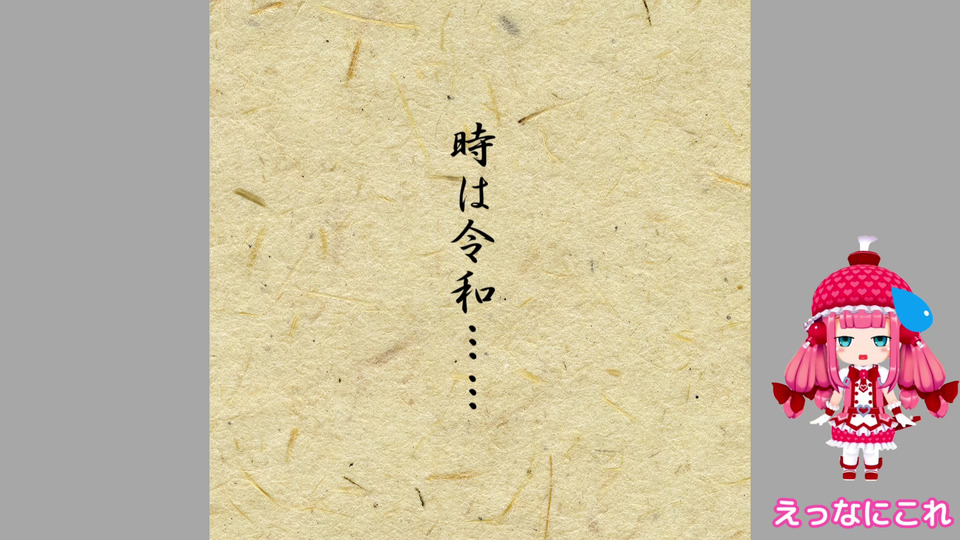 時は令和……
えっなにこれ